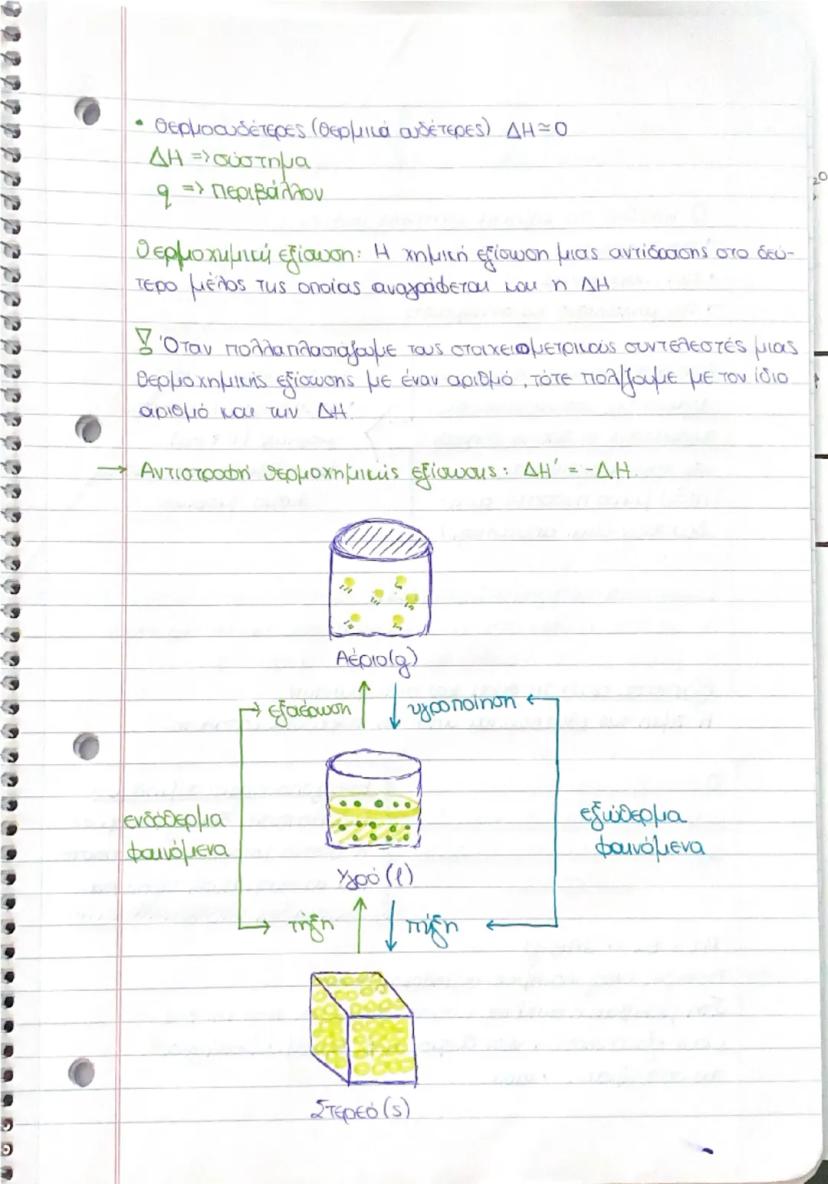 • Θερμοουδέτερες (θερμικά ουδέτερες) ΔΗ ≃ 0
ΔΗ => σύστημα
q => περιβάλλον
Θερμοχημική εξίσωση: Η χημική εξίσωση μιας αντίδρασης στο δεύ-
τερο μέλος της οποίας αναγράφεται και η ΔΗ
! Όταν πολλαπλασιάζουμε τους στοιχειομετρικούς συντελεστές μιας
θερμοχημικής εξίσωσης με έναν αριθμό, τότε πολ/ζουμε με τον ίδιο
αριθμό και την ΔΗ.
→ Αντιστροφή θερμοχημικής εξίσωσης: ΔΗ' = -ΔΗ
Αέριο (g)
εξαέρωση ↑ ↓ υγροποίηση
ενδόθερμα
φαινόμενα
εξώθερμα
φαινόμενα
Υγρό (l)
τήξη ↑ ↓ πήξη
Στερεό (s)